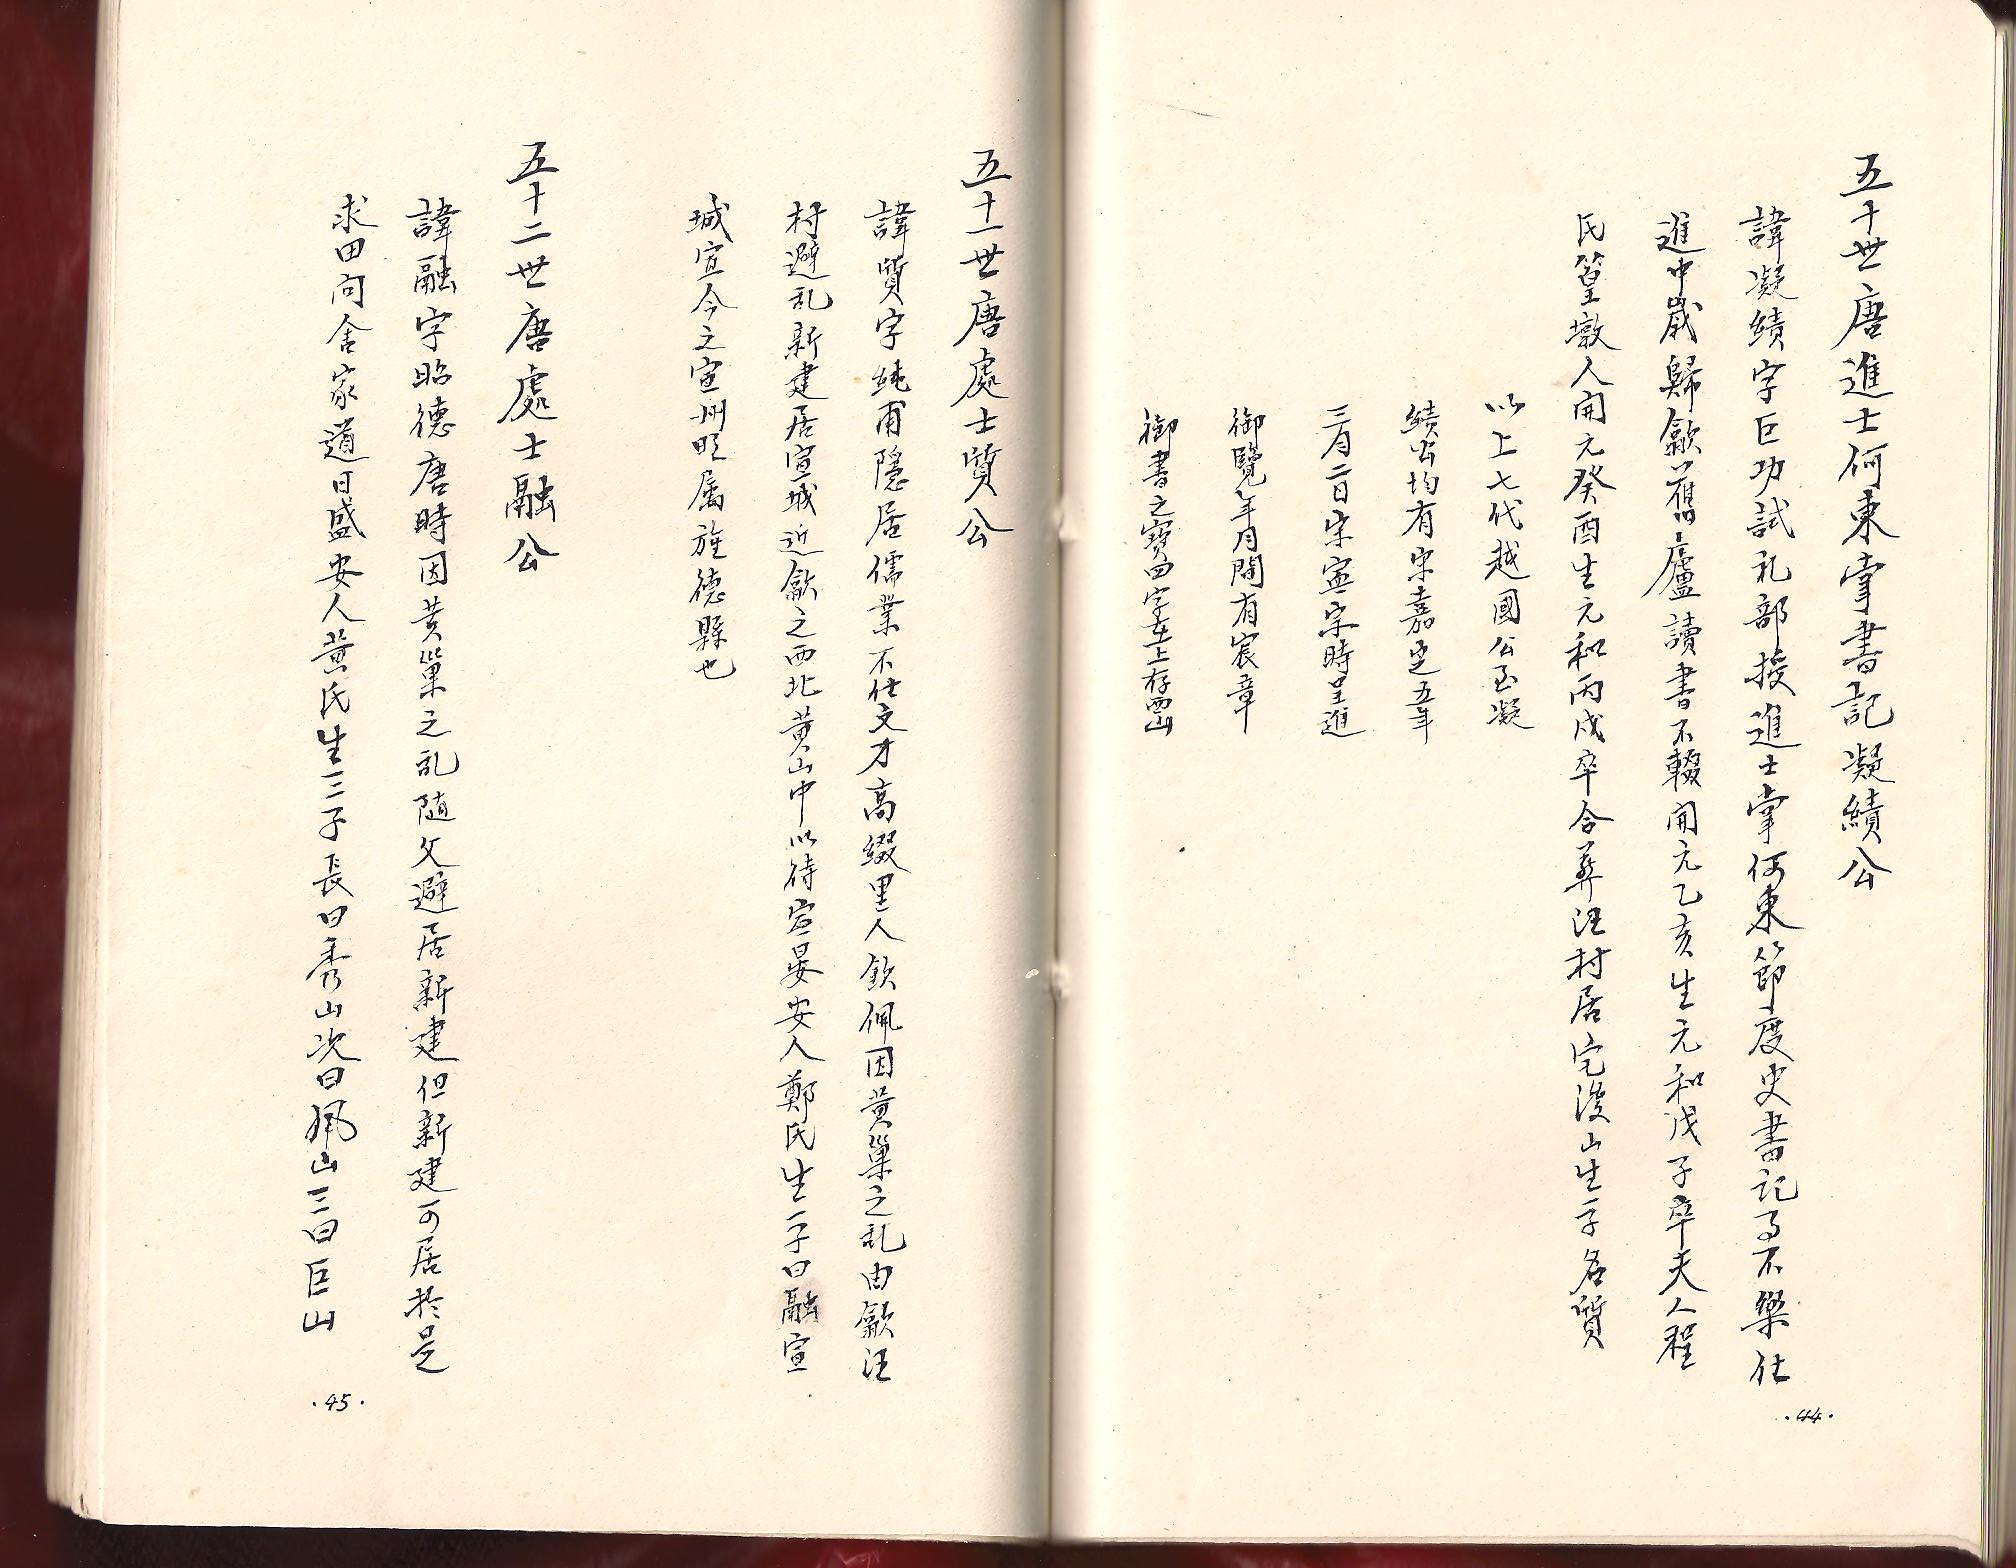 五十世唐進士何東掌書記凝績公
諱凝績字巨功試礼部授進士掌何東節度史書記事不樂仕
進中歲歸歙舊廬讀書不輟開元乙亥生元和戊子卒夫人程
氏篁墩人開元癸酉生元和丙戌卒合葬汪村居宅後山生一子名質
以上七代越國公至凝
績公均有宋嘉定五年
三月二日宋寧宗時呈進
御覽年月間有宸章
御書之寶四字在上存
·44·
五十一世唐處士質公
諱質字純甫隱居儒業不仕文才高綴里人欽佩因黃巢之乱由歙汪
村避乱新建居宣城近歙之西北黄山中以待宣晏安人鄭氏生一子曰融宣
城宣今之宣州旺属旌德縣也
五十二世唐處士融公
諱融字昭德唐時因黃巢之乱随父避居新建但新建可居於是
求田问舍家道日盛安人黄氏生三子長曰秀山次曰珮山三曰巨山
·45·